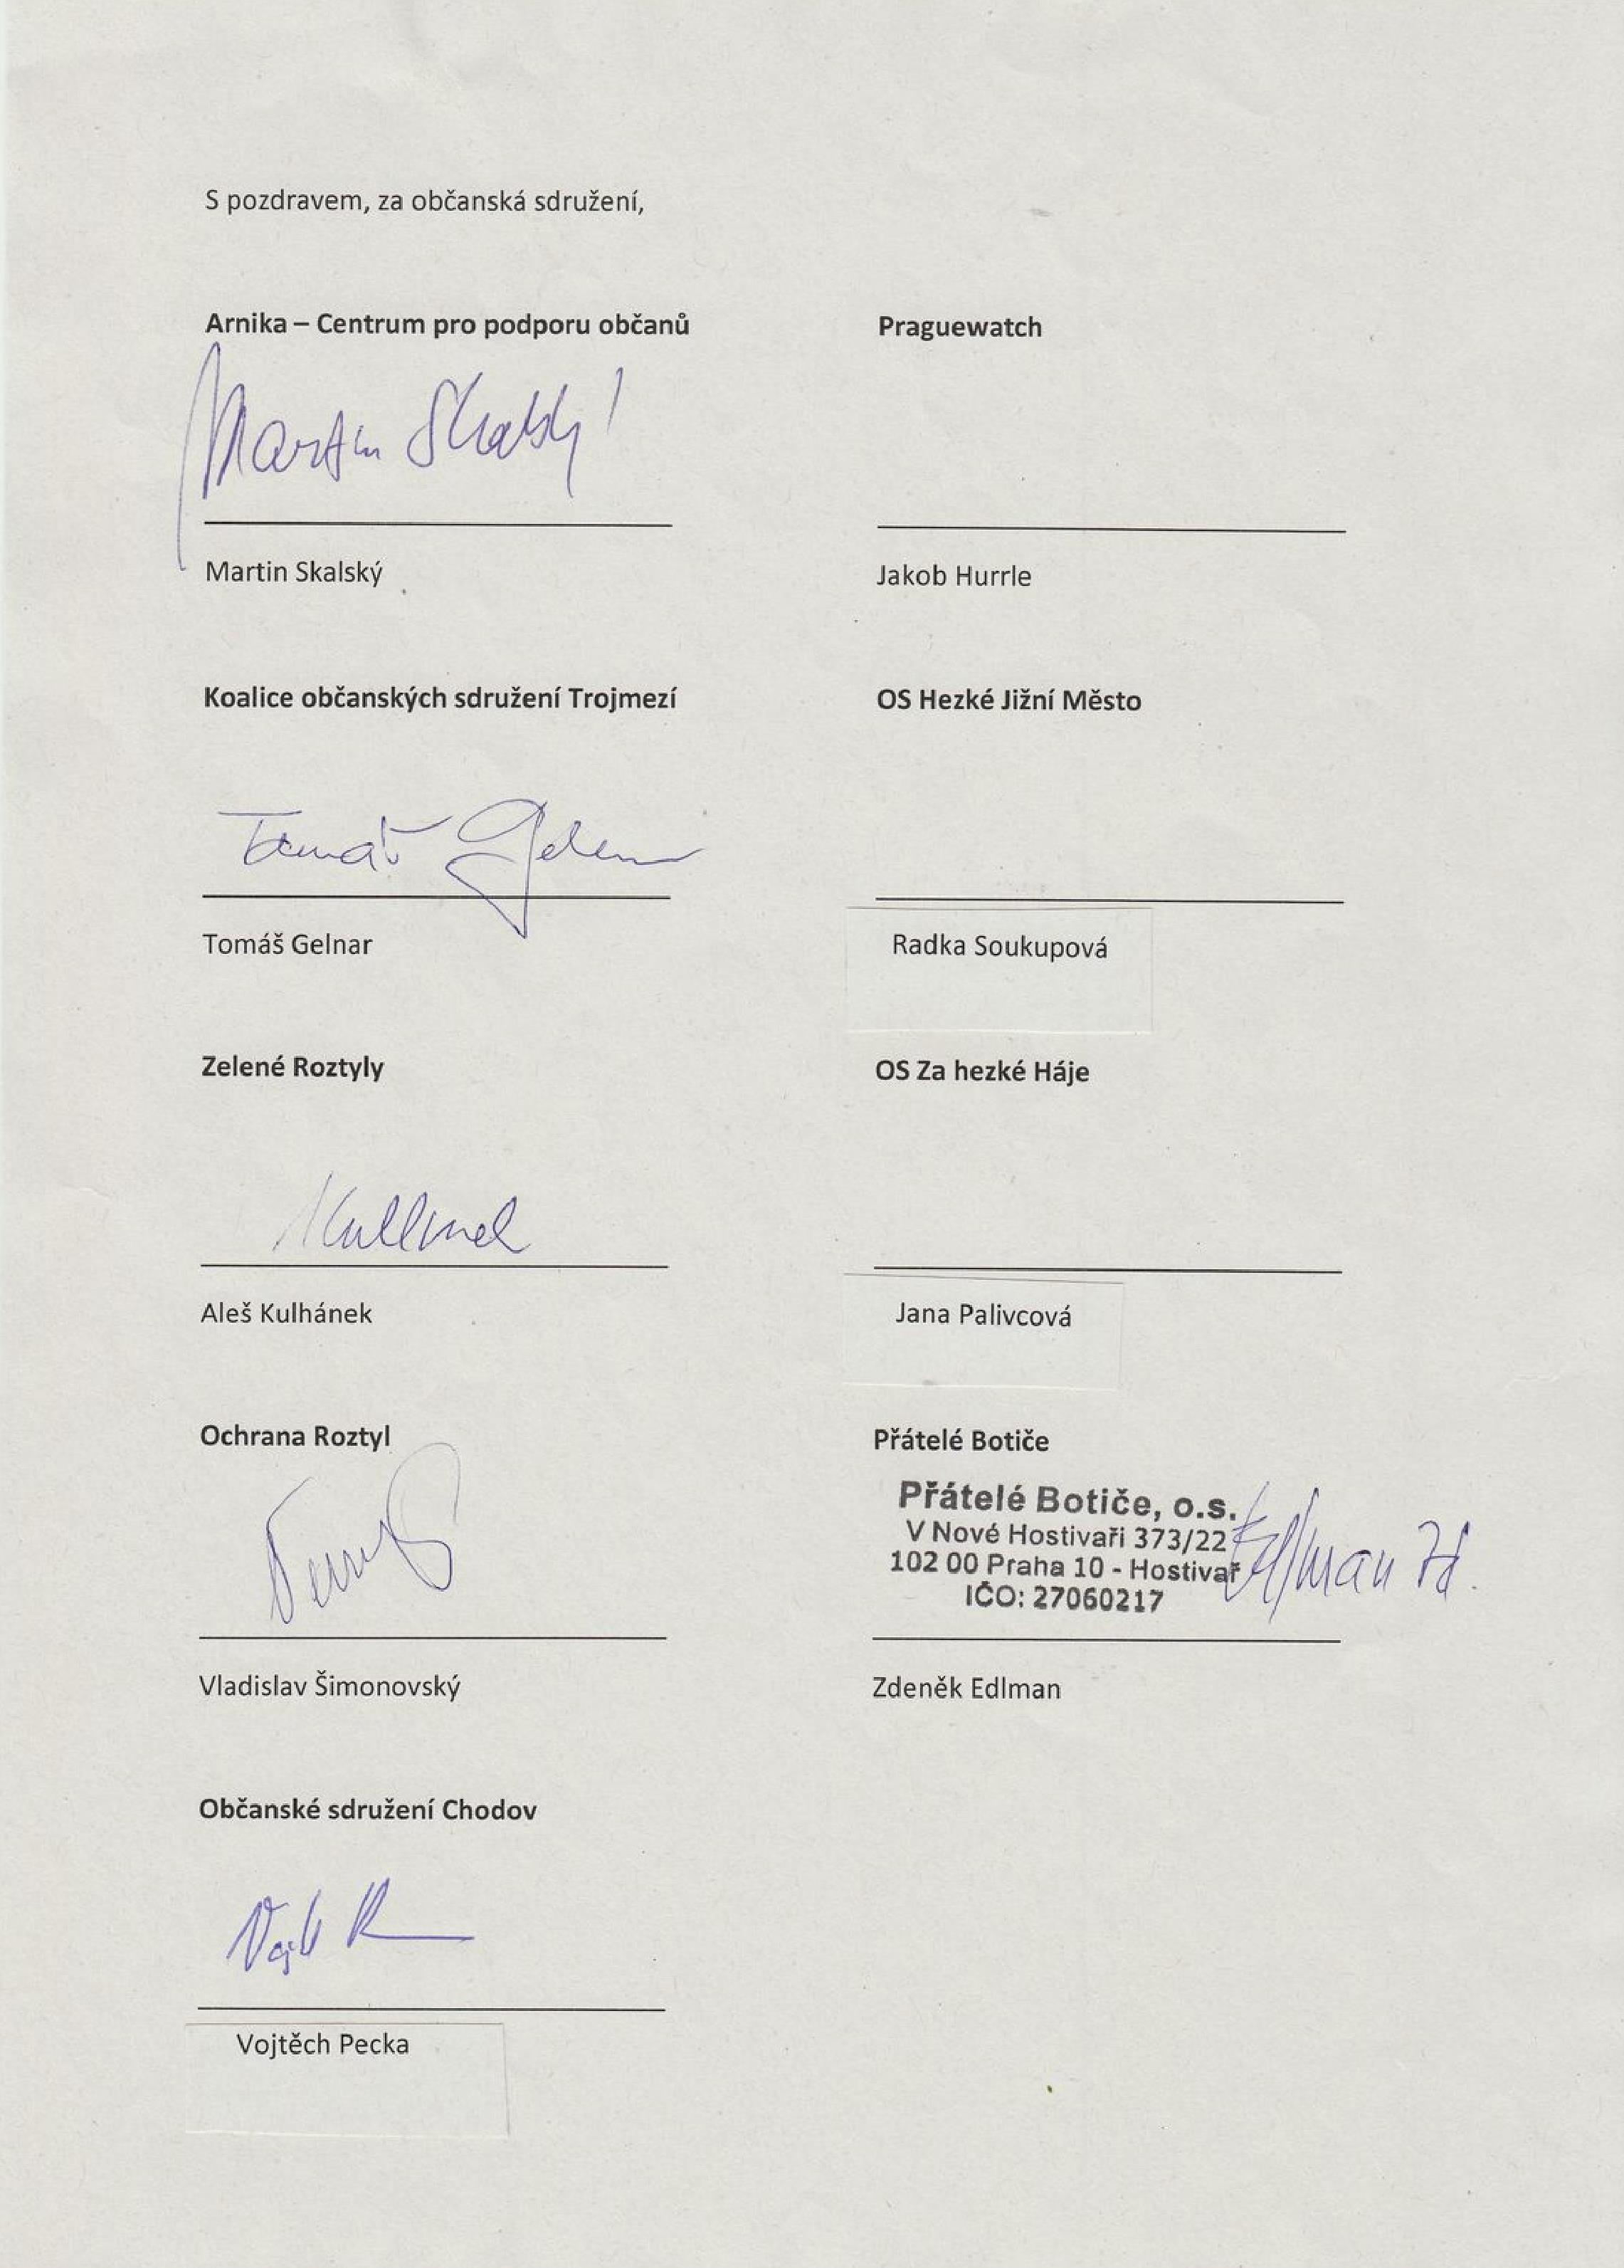 S pozdravem, za občanská sdružení,
Arnika – Centrum pro podporu občanů
Praguewatch
Martin Skalský
Martin Skalský
Jakob Hurrle
Koalice občanských sdružení Trojmezí
OS Hezké Jižní Město
Tomáš Gelnar
Tomáš Gelnar
Radka Soukupová
Zelené Roztyly
OS Za hezké Háje
Kulhánek
Aleš Kulhánek
Jana Palivcová
Ochrana Roztyl
Přátelé Botiče
Přátelé Botiče, o.s.
V Nové Hostivaři 373/22
102 00 Praha 10 - Hostivař
IČO: 27060217
Edlman Zd.
Vladislav Šimonovský
Zdeněk Edlman
Občanské sdružení Chodov
Vojtěch Pecka